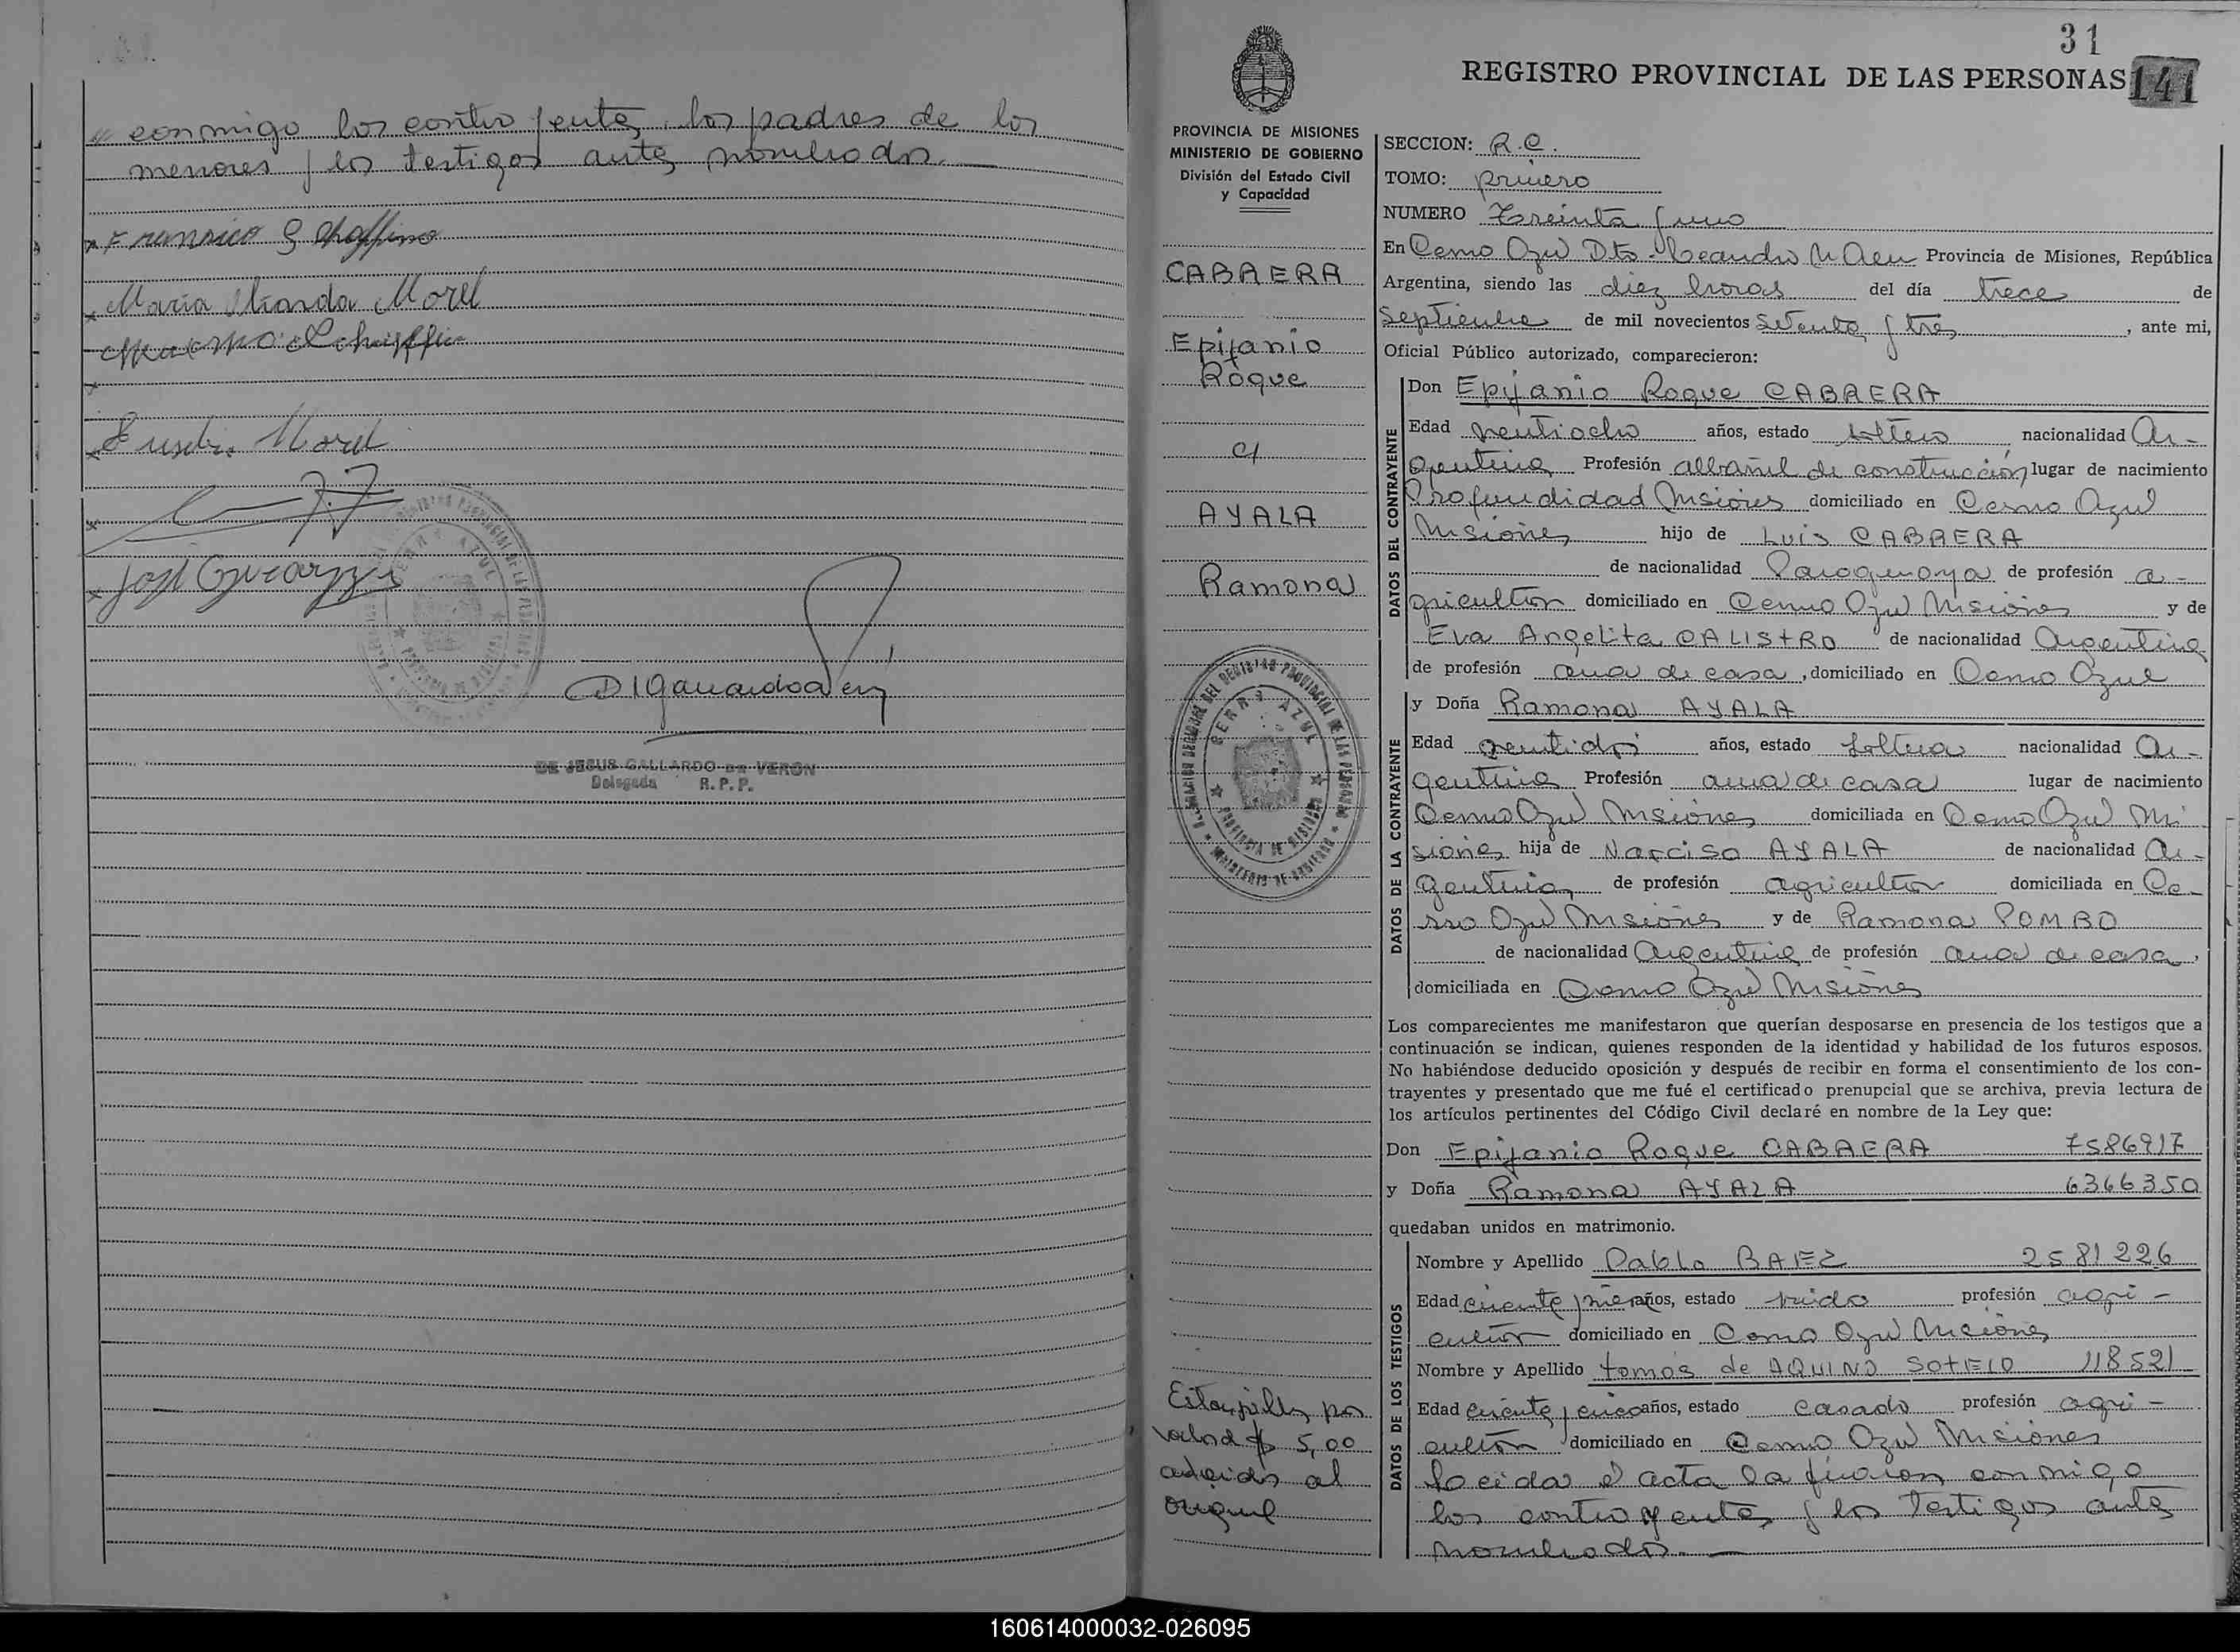 conmigo los contrayentes, los padres de los
menores y los testigos antes nombrados.
Maria Morel
Eusebio Morel
José
DE JESUS GALLARDO DE VERON
Delegada R.P.P.
31
REGISTRO PROVINCIAL DE LAS PERSONAS 141
PROVINCIA DE MISIONES
MINISTERIO DE GOBIERNO
División del Estado Civil
y Capacidad
CABRERA
Epifanio
Roque
c/
AYALA
Ramona
CERRO AZUL
Estampillas por
valor de $ 5,00
adheridas al
original
SECCION: R.C.
TOMO: primero
NUMERO Treinta y uno
En Cerro Azul Dto. Leandro N Alem Provincia de Misiones, República
Argentina, siendo las diez horas del día trece de
septiembre de mil novecientos setenta y tres, ante mi,
Oficial Público autorizado, comparecieron:
DATOS DEL CONTRAYENTE
Don Epifanio Roque CABRERA
Edad veintiocho años, estado soltero nacionalidad Ar-
gentina Profesión albañil de construcción lugar de nacimiento
Profundidad Misiones domiciliado en Cerro Azul
Misiones hijo de Luis CABRERA
de nacionalidad Paraguaya de profesión a-
gricultor domiciliado en Cerro Azul Misiones y de
Eva Angelita CALISTRO de nacionalidad Argentina
de profesión ama de casa, domiciliado en Cerro Azul
DATOS DE LA CONTRAYENTE
y Doña Ramona AYALA
Edad veintidos años, estado soltera nacionalidad Ar-
gentina Profesión ama de casa lugar de nacimiento
Cerro Azul Misiones domiciliada en Cerro Azul Mi
siones hija de Narciso AYALA de nacionalidad Ar-
gentina, de profesión agricultor domiciliada en Ce-
rro Azul Misiones y de Ramona POMBO
de nacionalidad Argentina de profesión ama de casa,
domiciliada en Cerro Azul Misiones
Los comparecientes me manifestaron que querían desposarse en presencia de los testigos que a
continuación se indican, quienes responden de la identidad y habilidad de los futuros esposos.
No habiéndose deducido oposición y después de recibir en forma el consentimiento de los con-
trayentes y presentado que me fué el certificado prenupcial que se archiva, previa lectura de
los artículos pertinentes del Código Civil declaré en nombre de la Ley que:
Don Epifanio Roque CABRERA 7586917
y Doña Ramona AYALA 6366350
quedaban unidos en matrimonio.
DATOS DE LOS TESTIGOS
Nombre y Apellido Pablo BAEZ 2581226
Edad años, estado viudo profesión agri-
cultor domiciliado en Cerro Azul Misiones
Nombre y Apellido tomás de AQUINO SOTELO 118521
Edad años, estado casado profesión agri-
cultor domiciliado en Cerro Azul Misiones
Leida el acta la firman conmigo
los contrayentes y los testigos antes
nombrados.
160614000032-026095